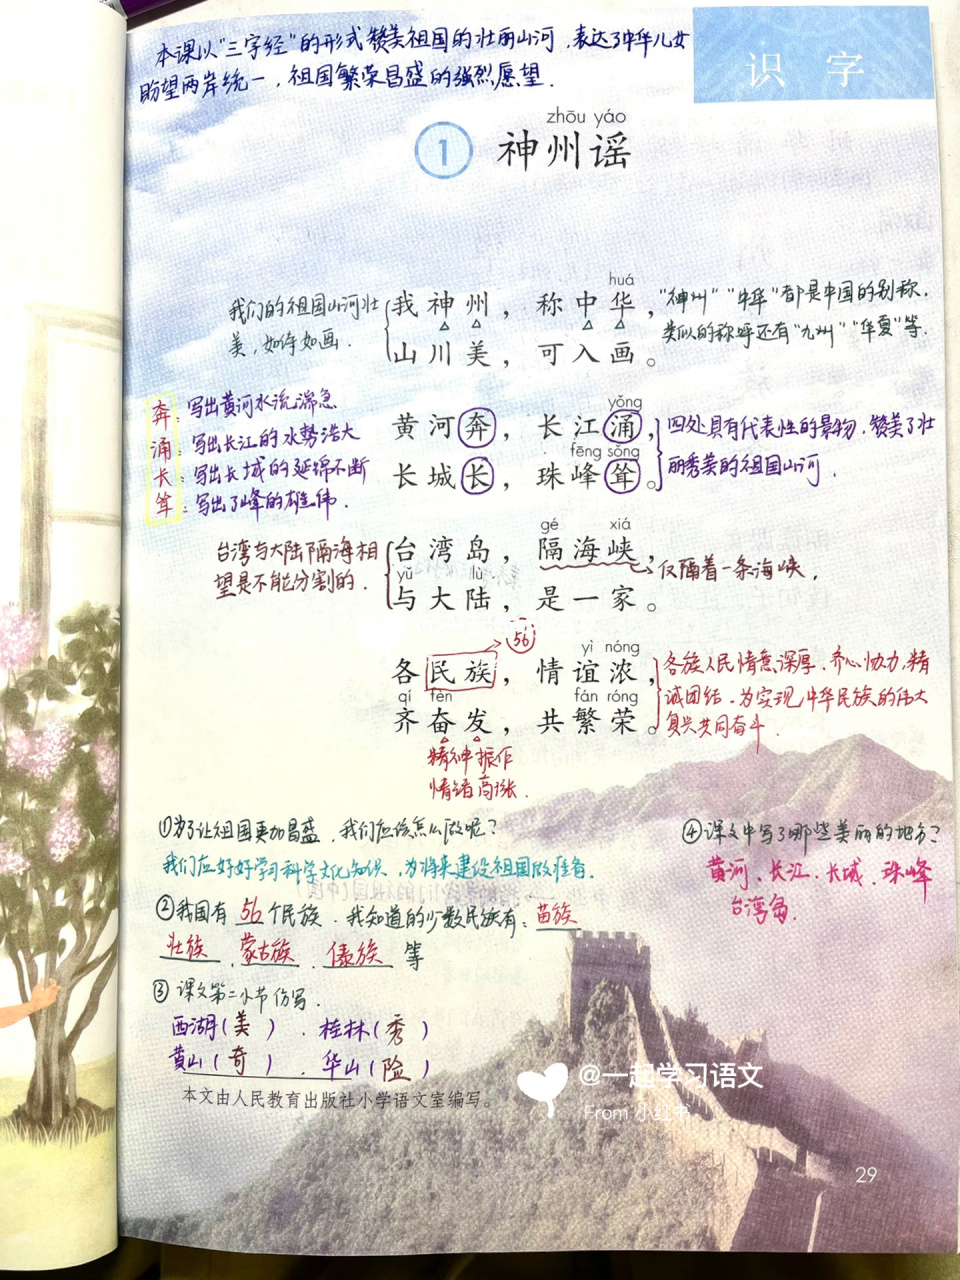 本课以"三字经"的形式赞美祖国的壮丽山河,表达了中华儿女
盼望两岸统一,祖国繁荣昌盛的强烈愿望.
识 字
zhōu yáo
1 神州谣
huá
我们的祖国山河壮
美,如诗如画.
我神州,称中华,
山川美,可入画。
"神州""中华"都是中国的别称,
类似的称呼还有"九州""华夏"等.
奔:写出黄河水流湍急
涌:写出长江的水势浩大
长:写出长城的延绵不断
耸:写出了峰的雄伟.
yǒng
黄河奔,长江涌,
fēng sǒng
长城长,珠峰耸。
四处具有代表性的景物,赞美了壮
丽秀美的祖国山河.
台湾与大陆隔海相
望是不能分割的.
gé xiá
台湾岛,隔海峡,
yǔ lù
与大陆,是一家。
仅隔着一条海峡,
56
yì nóng
各民族,情谊浓,
qí fèn fán róng
齐奋发,共繁荣。
各族人民情意深厚.齐心协力,精
诚团结.为实现中华民族的伟大
复兴共同奋斗.
精神振作
情绪高涨.
①为了让祖国更加昌盛,我们应该怎么做呢?
我们应好好学习科学文化知识,为将来建设祖国做准备.
②我国有 56 个民族.我知道的少数民族有:苗族
壮族.蒙古族.傣族 等
③课文第二小节仿写.
西湖(美).桂林(秀)
黄山(奇).华山(险)
④课文中写了哪些美丽的地方?
黄河、长江、长城、珠峰
台湾岛.
本文由人民教育出版社小学语文室编写。
@一起学习语文
From 小红书
29